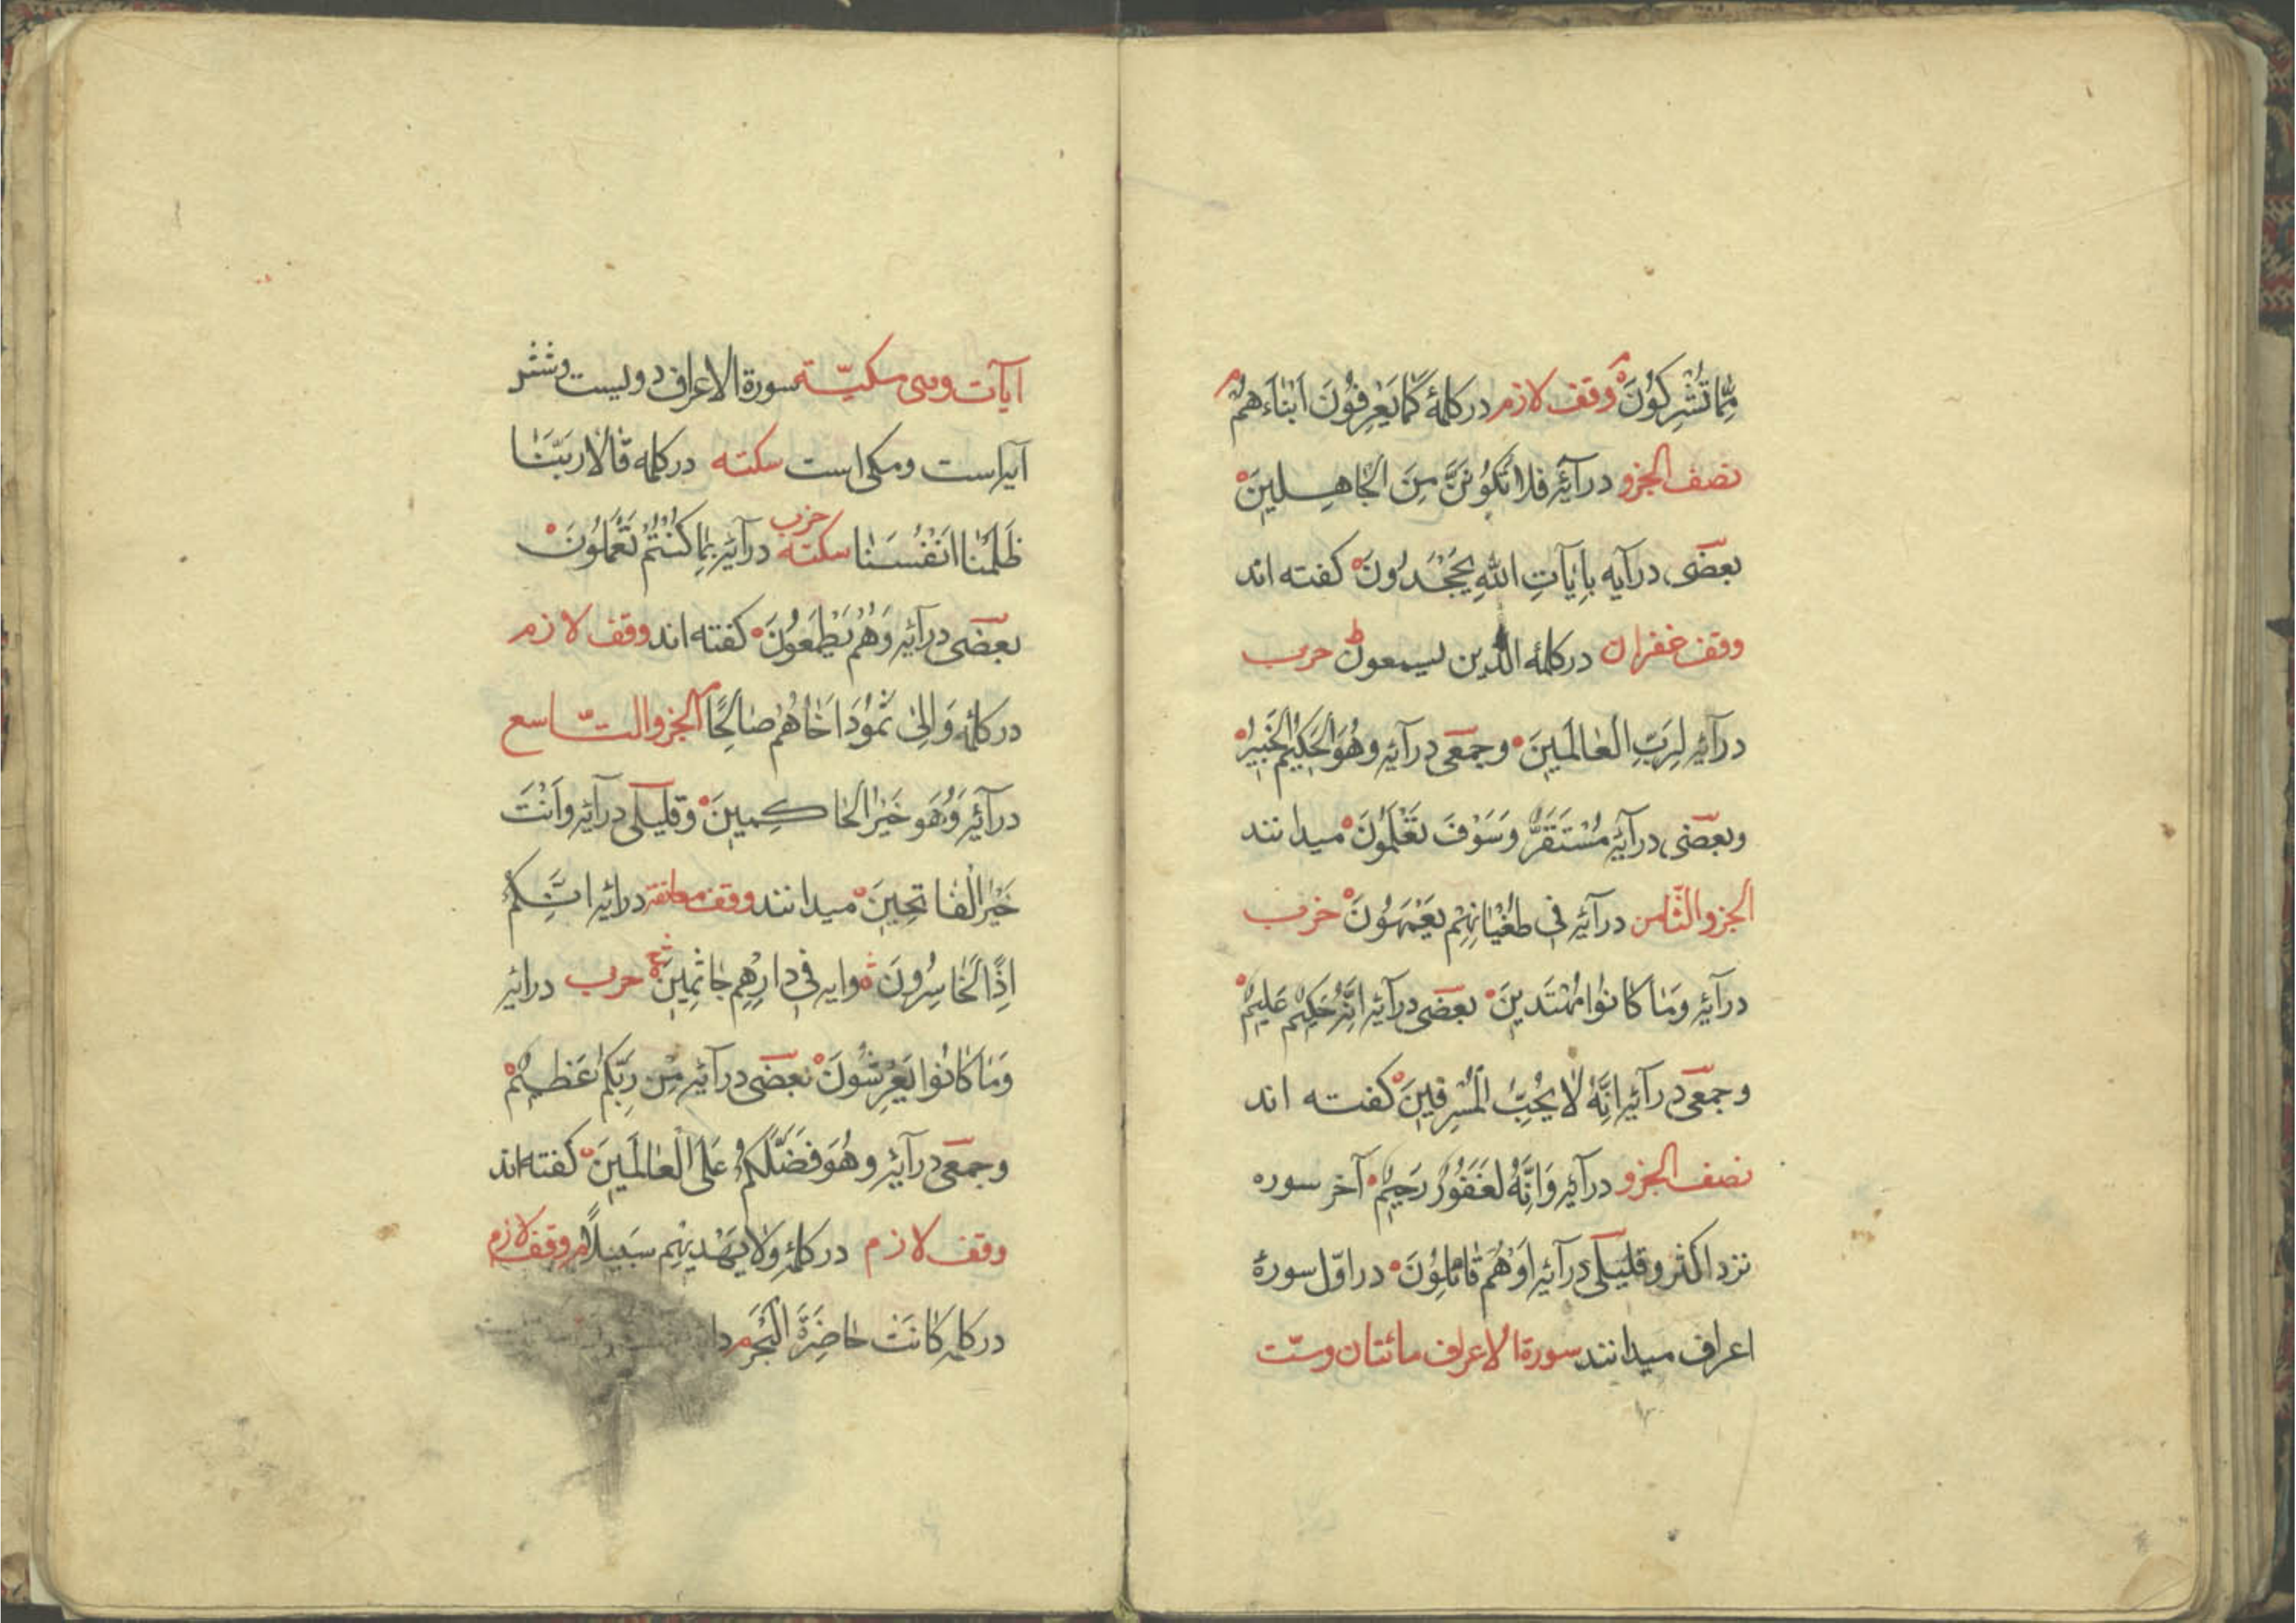 مِمَّا تُشْرِكُونَ وقف لازم در کلمهٔ كَمَا يَعْرِفُونَ اَبْنَاءَهُمْ م
نصف الجزو در آیهٔ فَلَا تَكُونَنَّ مِنَ الْجَاهِلِينَ
بعضی در آیه بِاٰيَاتِ اللّٰهِ يَجْحَدُونَ کفته اند
وقف غفران در کلمهٔ الَّذين يسمعون ط حزب
در آیهٔ لِرَبِّ الْعَالَمِينَ وجمعی در آیهٔ وهُوَ الْحَكِيمُ الْخَبِيرُ
وبعضی در آیهٔ مُسْتَقَرٌّ وَسَوْفَ تَعْلَمُونَ میدانند
الجزو الثّامن در آیهٔ فِی طُغْيَانِهِمْ يَعْمَهُونَ حزب
در آیهٔ وَمَا كَانُوا مُهْتَدِينَ بعضی در آیهٔ اِنَّهُ حَكِيمٌ عَلِيمٌ
وجمعی در آیهٔ اِنَّهُ لَا يُحِبُّ الْمُسْرِفِينَ کفته اند
نصف الجزو در آیهٔ وَاِنَّهُ لَغَفُورٌ رَحِيمٌ آخر سوره
نزد اکثر وقلیلی در آیهٔ اَوْ هُمْ قَائِلُونَ در اوّل سورهٔ
اعراف میدانند سورة الاعراف مائتان وستّ
اٰیات وهی مکیّة سورة الاعراف دویست وشش
آیه است ومکی است سکته در کلمه قَالَا رَبَّنَا
ظَلَمْنَا اَنْفُسَنَا سکته حزب در آیهٔ بِمَا كُنْتُمْ تَعْمَلُونَ
بعضی در آیهٔ وَهُمْ يَطْمَعُونَ کفته اند وقف لازم
در کلمهٔ وَاِلٰى ثَمُودَ اَخَاهُمْ صَالِحًا م الجزو التّاسع
در آیهٔ وَهُوَ خَيْرُ الْحَاكِمِينَ وقلیلی در آیهٔ وَاَنْتَ
خَيْرُ الْفَاتِحِينَ میدانند وقف معانقة در آیهٔ اِنَّكُمْ
اِذًا لَخَاسِرُونَ وایه فِی دَارِهِمْ جَاثِمِينَ حزب در آیهٔ
وَمَا كَانُوا يَعْرِشُونَ بعضی در آیهٔ مِنْ رَبِّكُمْ عَظِيمٌ
وجمعی در آیهٔ وهُوَ فَضَّلَكُمْ عَلَى الْعَالَمِينَ کفته اند
وقف لازم در کلمهٔ وَلَا يَهْدِيهِمْ سَبِيلًا م وقف لازم
در کلمه كَانَتْ حَاضِرَةَ الْبَحْرِ م